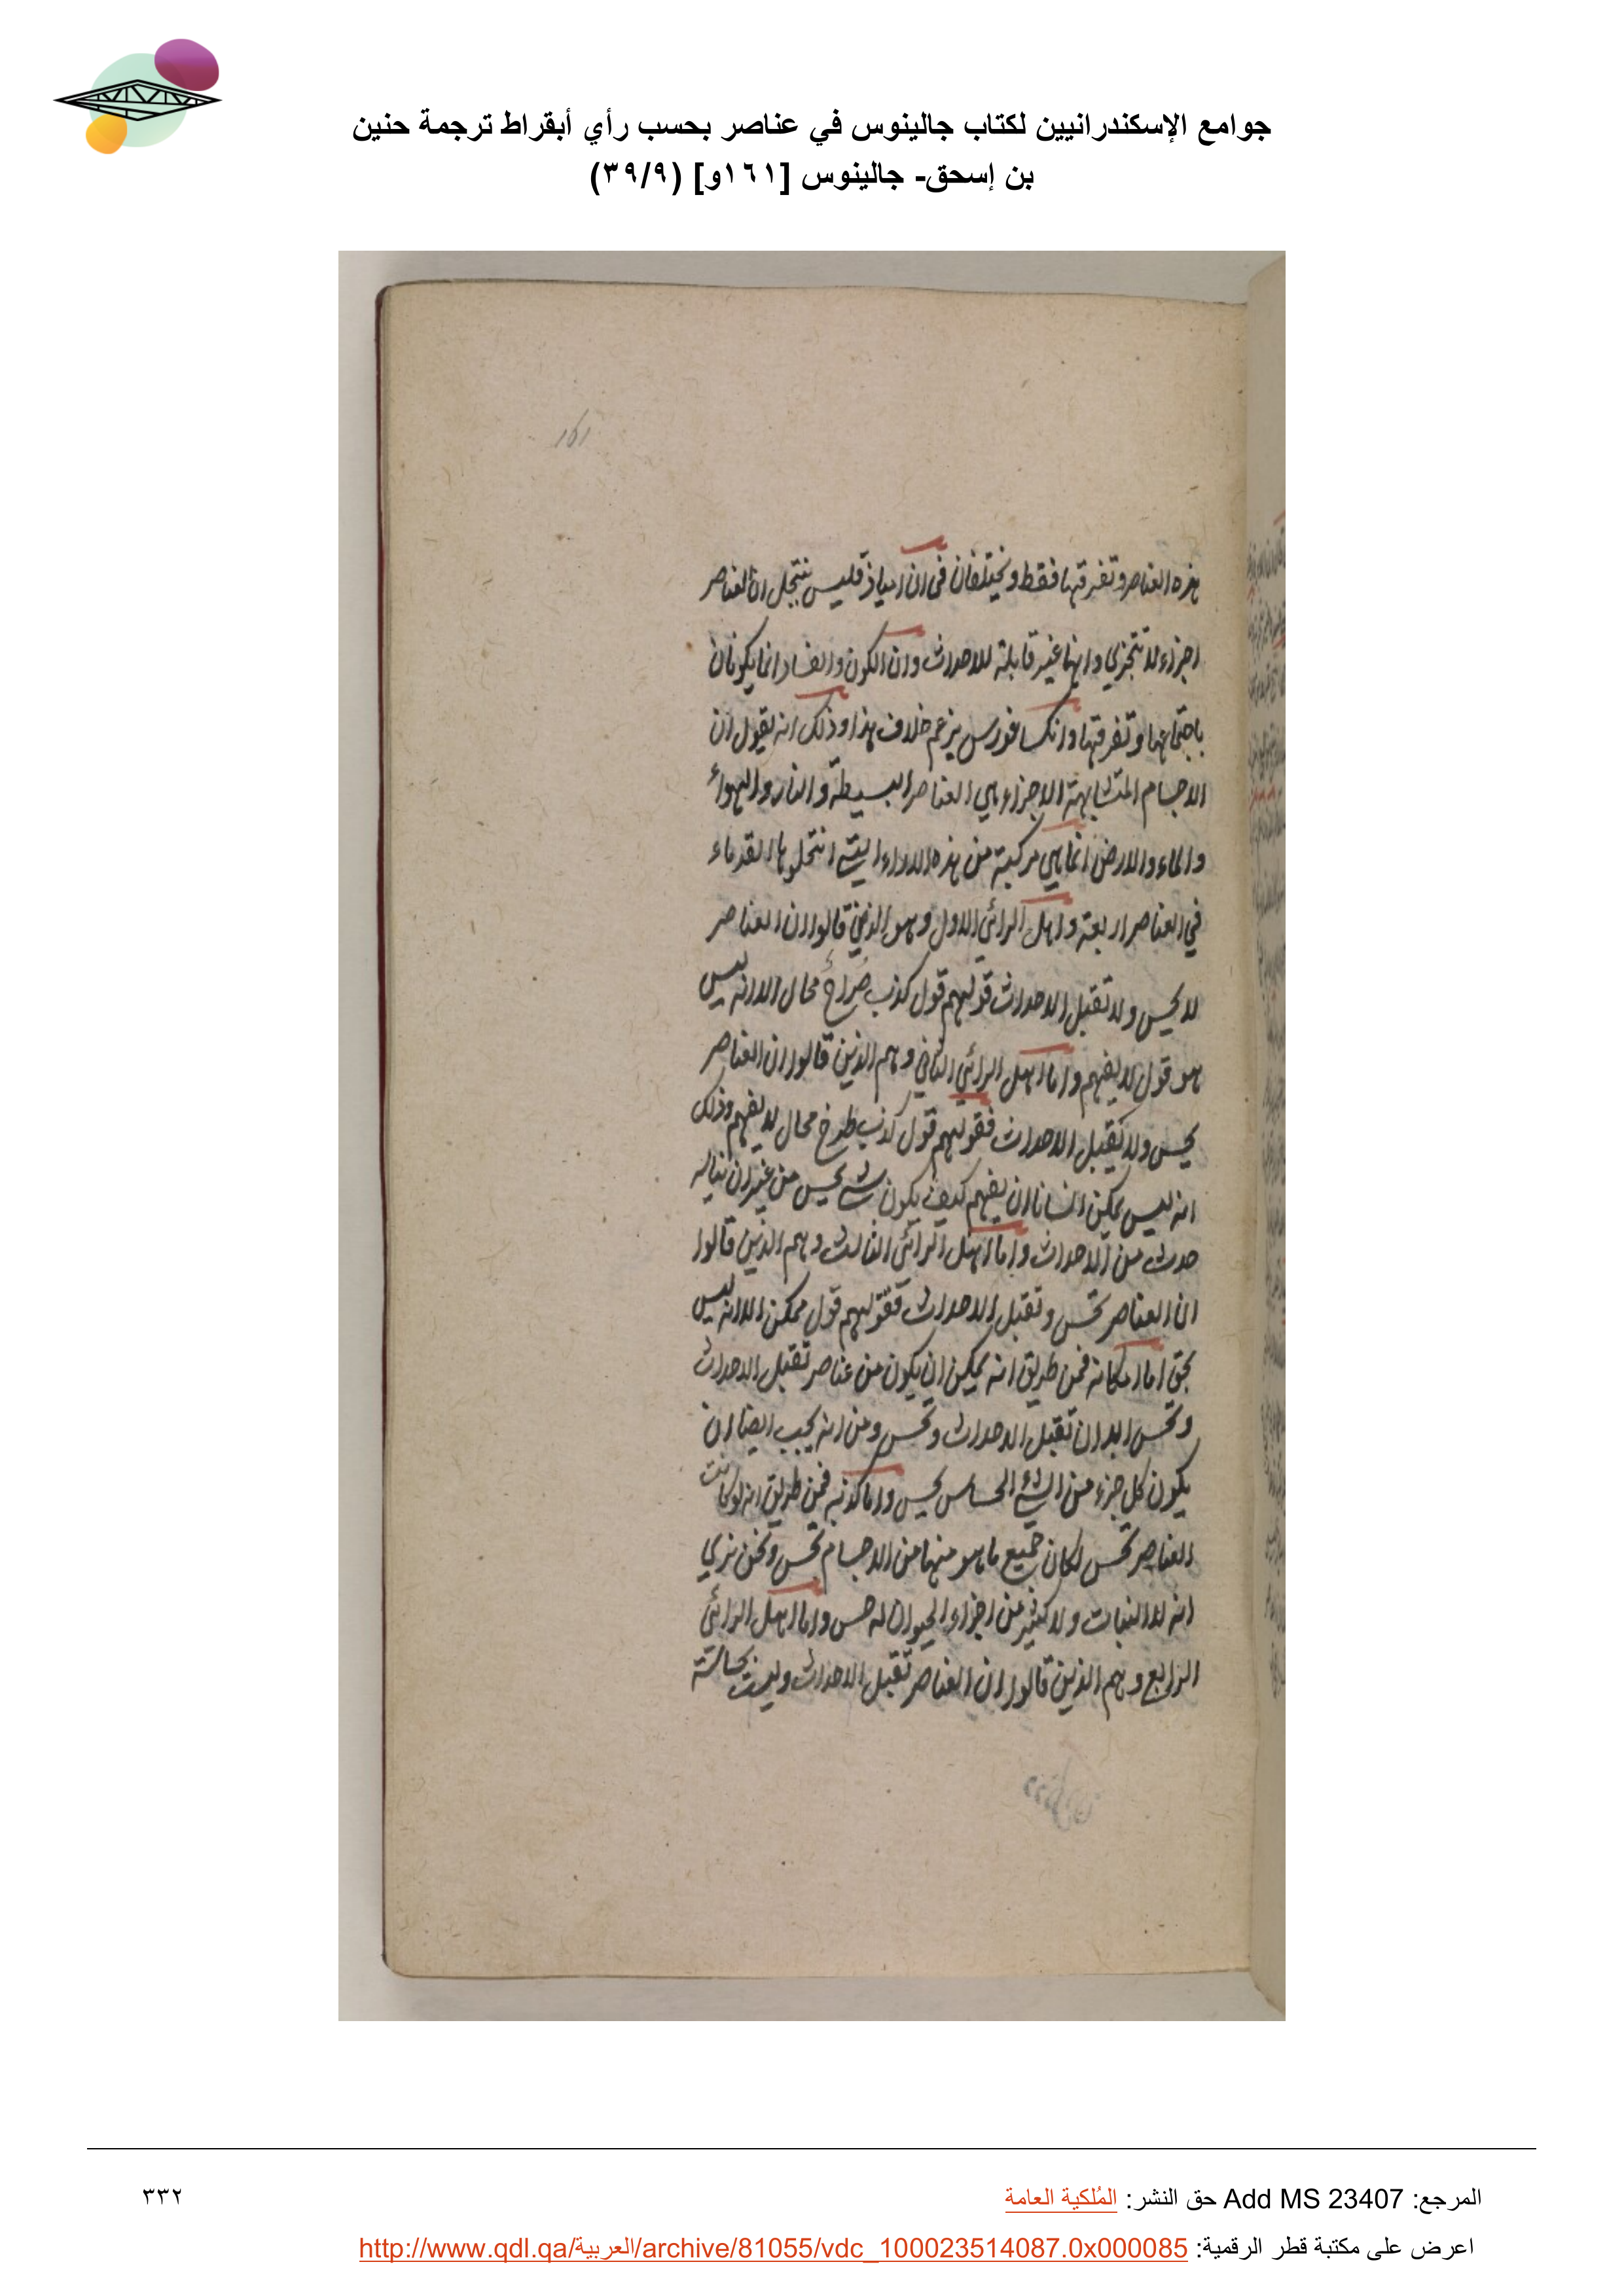 جوامع الإسكندرانيين لكتاب جالينوس في عناصر بحسب رأي أبقراط ترجمة حنين
بن إسحق- جالينوس [١٦١و] (٣٩/٩)
161
هذه العناصر وتفرقتها فقط ويختلفان في ان انبياذقليس ينتحل ان العناصر
اجزاء لا تتجزي وانها غير قابلة للاحداث وان الكون والفساد انما يكونان
باجتماعها وتفرقتها وانكساغورس يزعم خلاف هذا وذلك انه يقول ان
الاجسام المتشابهة الاجزاء هي العناصر البسيطة والنار والهواء
والماء والارض انما هي مركبة من هذه الاراء التي انتحلوها القدماء
في العناصر اربعة واهل الرائي الاول وهو الذين قالوا ان العناصر
لا تحس ولا تقبل الاحداث قولهم قول كذب صُراحٌ محال الا انه ليس
هو قول لا يفهم واما اهل الرائي الثاني وهم الذين قالوا ان العناصر
تحس ولا تقبل الاحداث فقولهم قول كذب محال لا يفهم وذلك
انه ليس يمكن انسانا ان يفهم كيف يكون شي يحس من غير ان يناله
حدث من الاحداث واما اهل الرائي الثالث وهم الذين قالوا
ان العناصر تحس وتقبل الاحداث فقولهم قول ممكن الا انه ليس
بحق اما امكانه فمن طريق انه يمكن ان يكون من عناصر تقبل الاحداث
وتحس ابدان تقبل الاحداث وتحس ومن انه يجب ايضا ان
يكون كل جزء من الشيء الحساس يحس واما كذبه فمن طريق انه لو كانت
العناصر تحس لكان جميع ما هو منها من الاجسام تحس ونحن نري
انه لا النبات ولا كثير من اجزاء الحيوان له حس واما اهل الرائي
الرابع وهم الذين قالوا ان العناصر تقبل الاحداث وليست بحاسة
المرجع: Add MS 23407 حق النشر: المُلكية العامة
٣٣٢
اعرض على مكتبة قطر الرقمية: http://www.qdl.qa/العربية/archive/81055/vdc_100023514087.0x000085